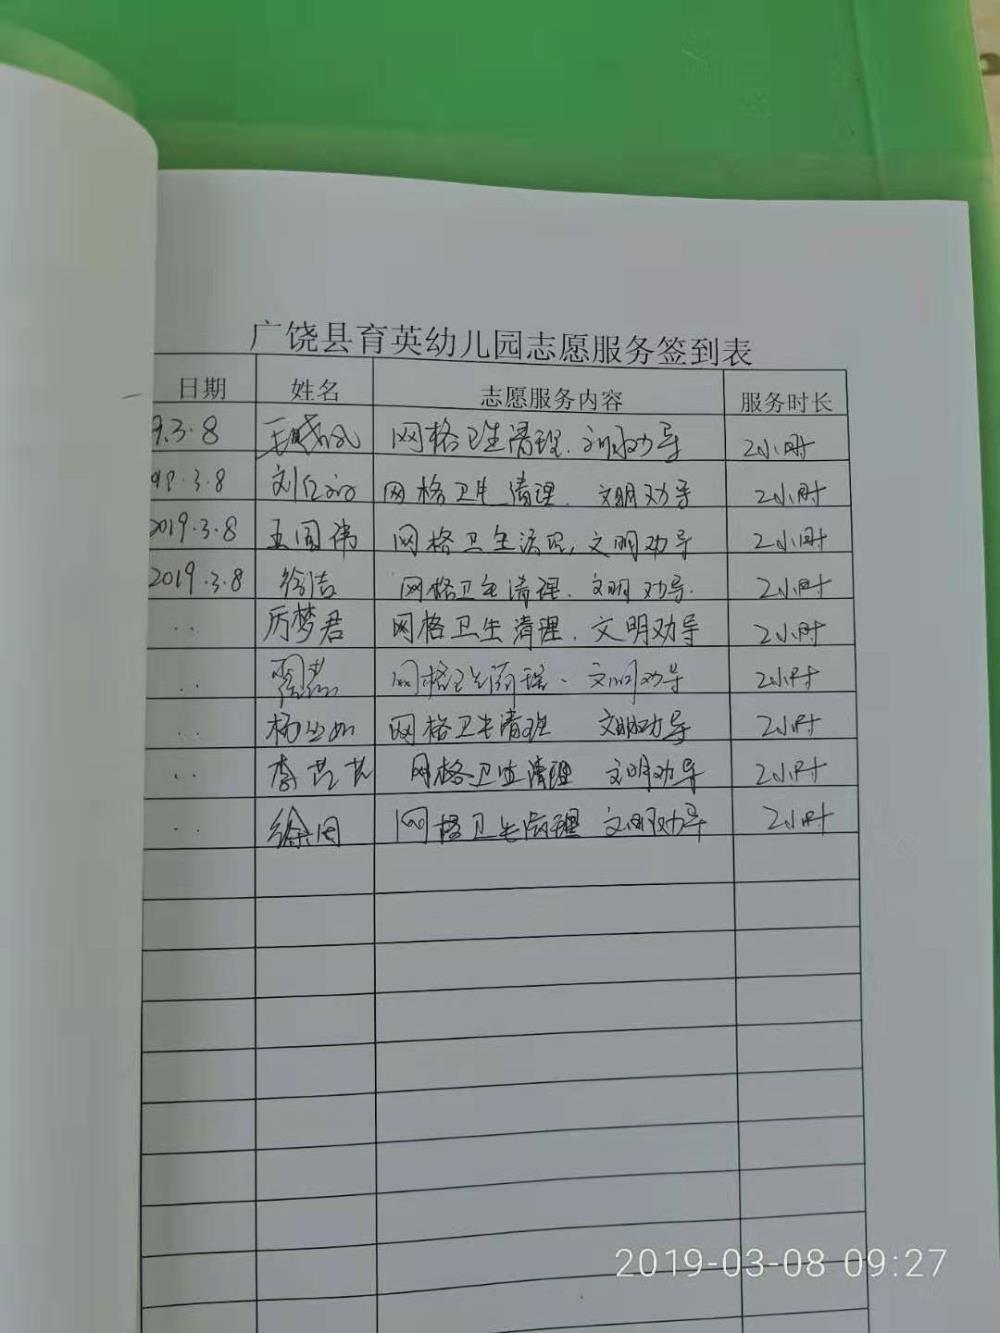 广饶县育英幼儿园志愿服务签到表
日期 姓名 志愿服务内容 服务时长
9.3.8 网格卫生清理. 文明劝导 2小时
19.3.8 网格卫生清理. 文明劝导 2小时
2019.3.8 王国伟 网格卫生清理, 文明劝导 2小时
2019.3.8 徐洁 网格卫生清理. 文明劝导. 2小时
.. 厉梦君 网格卫生清理. 文明劝导 2小时
.. 网格卫生清理. 文明劝导 2小时
.. 网格卫生清理 文明劝导 2小时
.. 李芸芸 网格卫生清理 文明劝导 2小时
.. 网格卫生清理 文明劝导 2小时
2019-03-08 09:27